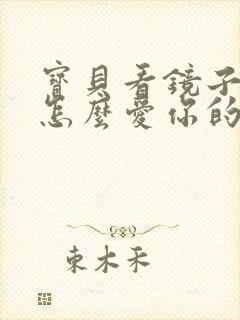 寶貝看鏡子
怎麼愛你的
東木禾